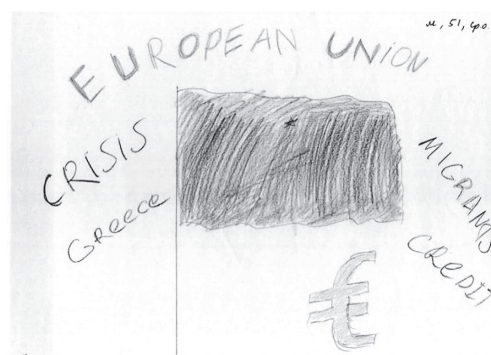 м, 51, ср.о.
EUROPEAN UNION
CRISIS
Greece
MIGRANTS
CREDIT
€